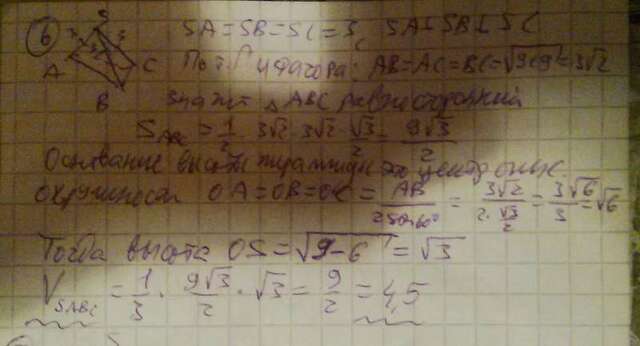 6 SA=SB=SC=3, SA⊥SB⊥SC
S 3 3 3 A C B
По т. Пифагора: AB=AC=BC=√9+9=3√2
значит △ABC равносторонний
S_ABC = 1/2 · 3√2 · 3√2 · √3/2 = 9√3/2
Основание высоты пирамиды это центр опис.
окружности OA=OB=OC = AB/2sin60° = 3√2/(2·√3/2) = 3√6/3 = √6
Тогда высота OS=√9-6 = √3
V_SABC = 1/3 · 9√3/2 · √3 = 9/2 = 4,5